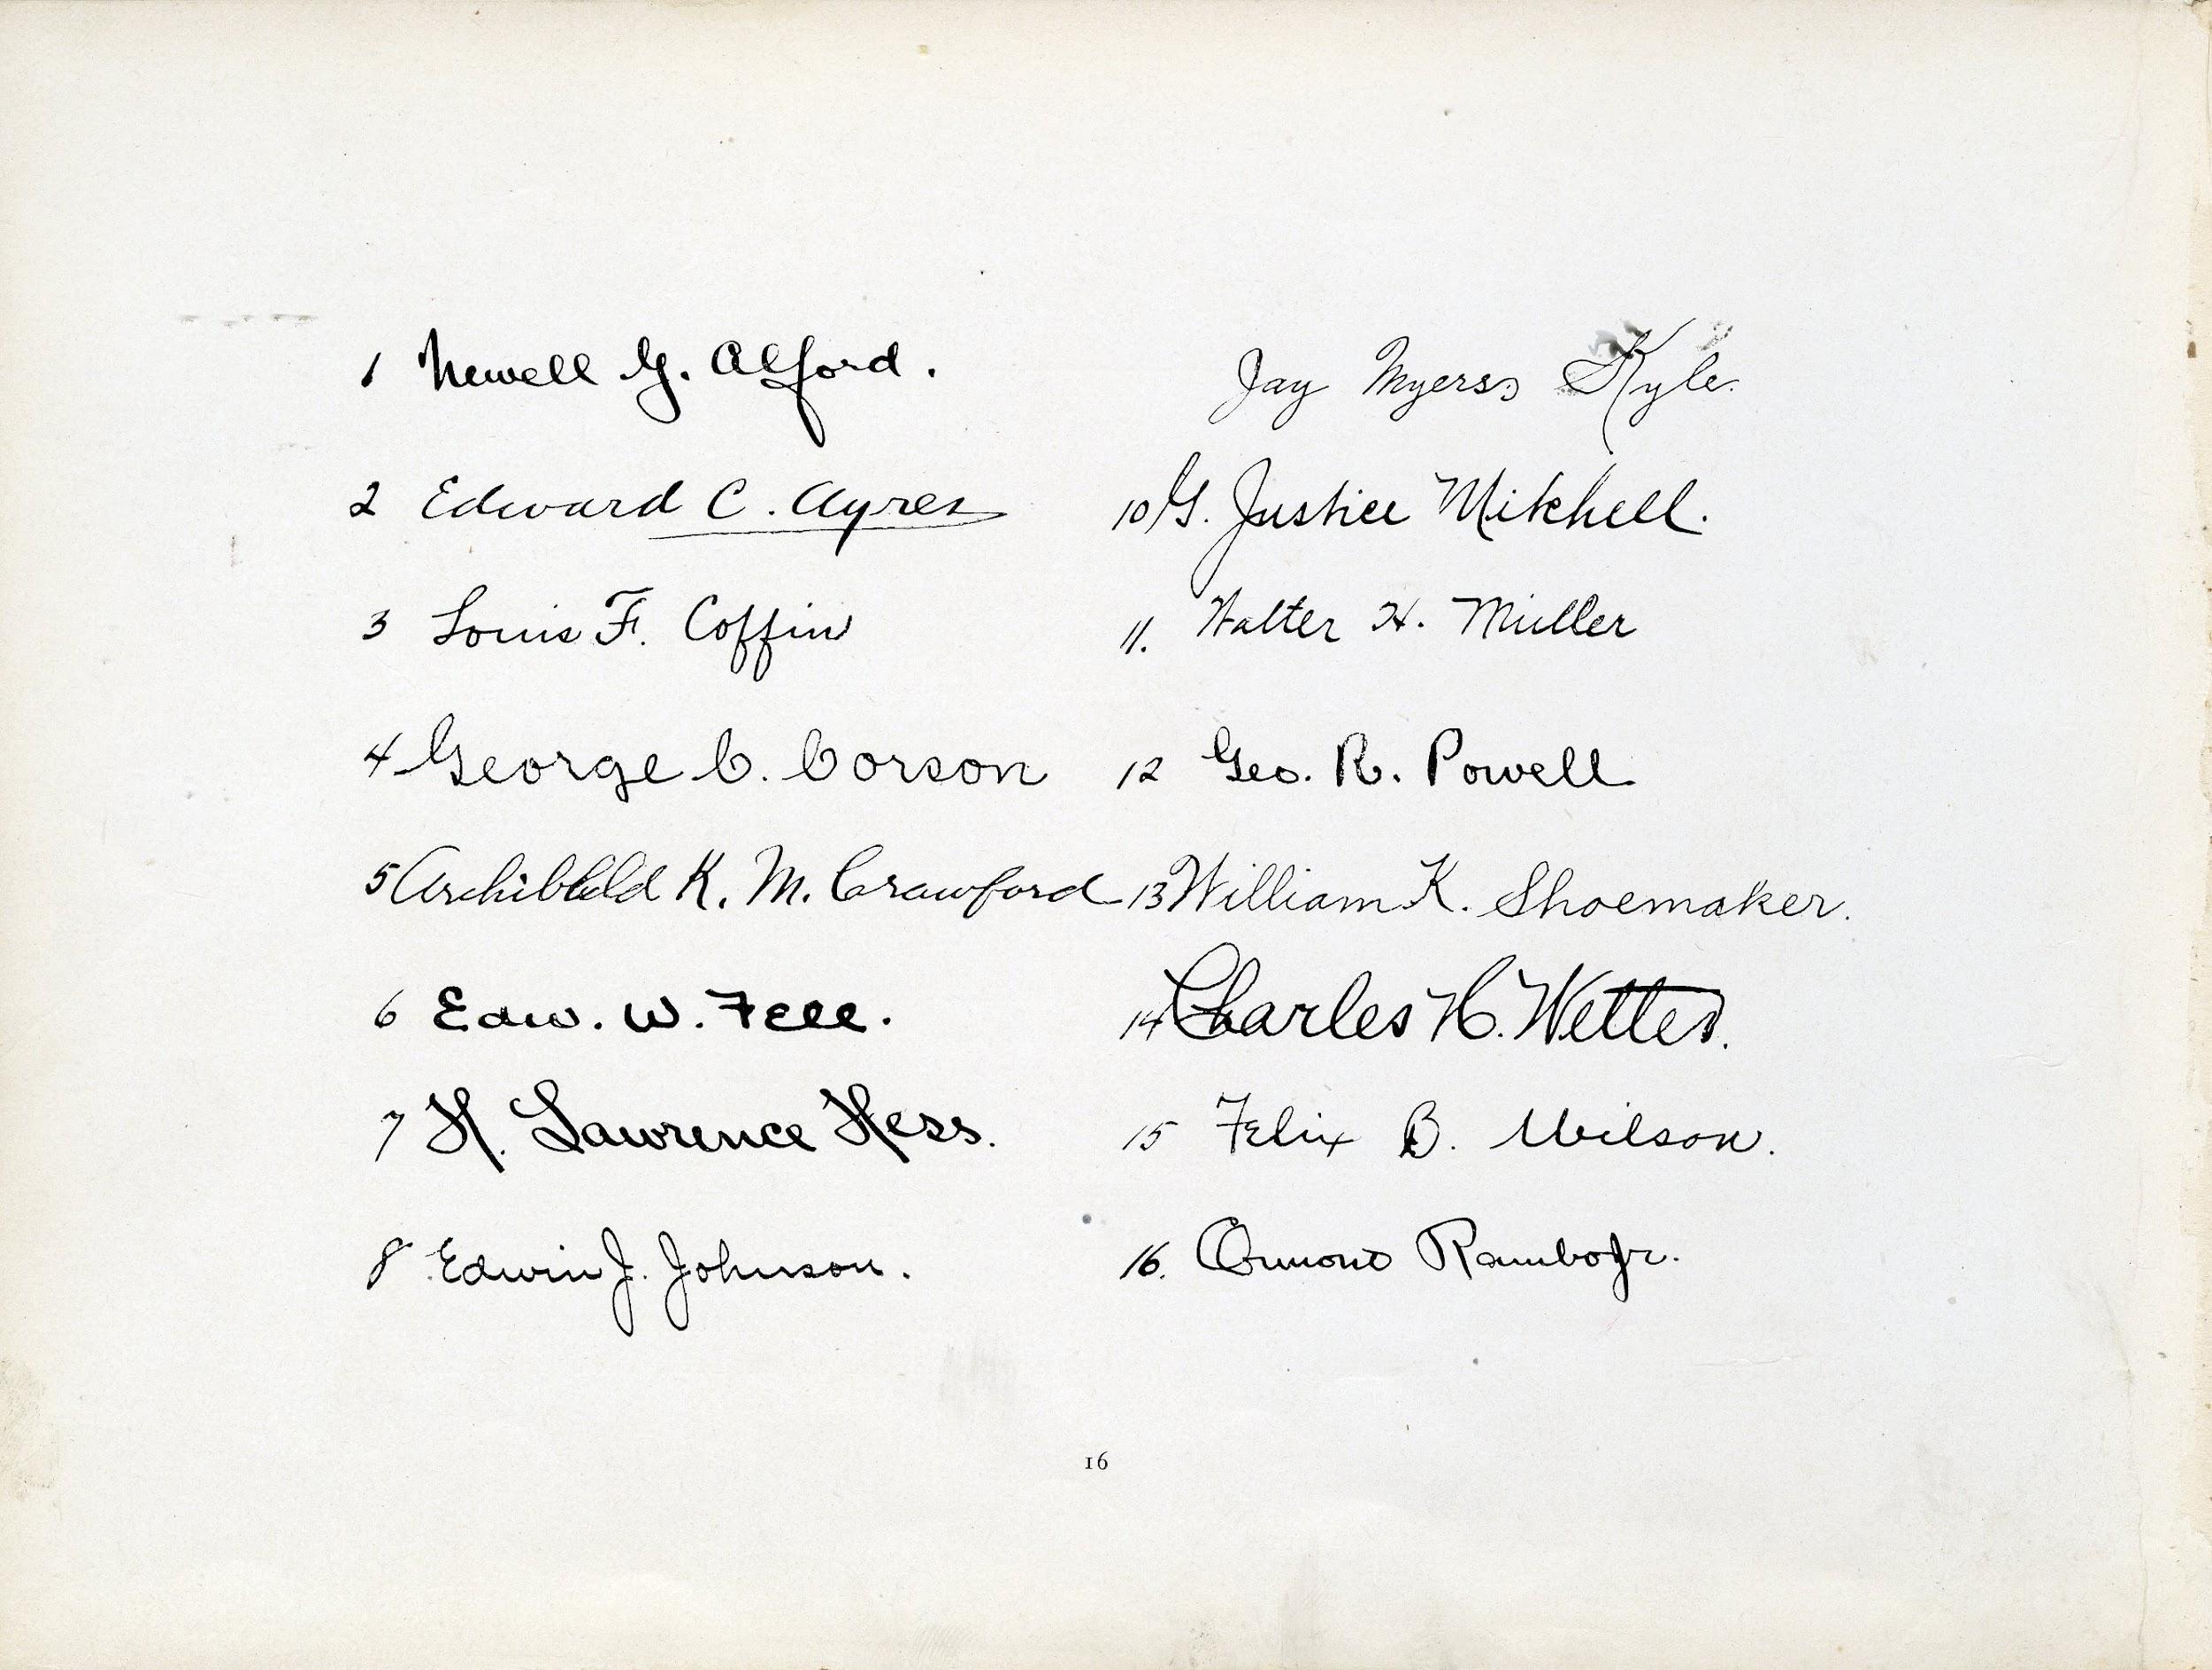 1 Newell G. Alford.
2 Edward C. Ayres
3 Louis F. Coffin
4 George C. Corson
5 Archibald K. M. Crawford
6 Edw. W. Fell.
7 H. Lawrence Hess.
8 Edwin J. Johnson.
Jay Myers Kyle.
10 G. Justice Mitchell.
11. Walter H. Muller
12 Geo. R. Powell
13 William K. Shoemaker.
14 Charles H. Wetter.
15 Felix B. Wilson.
16. Ormond Rambo Jr.
16